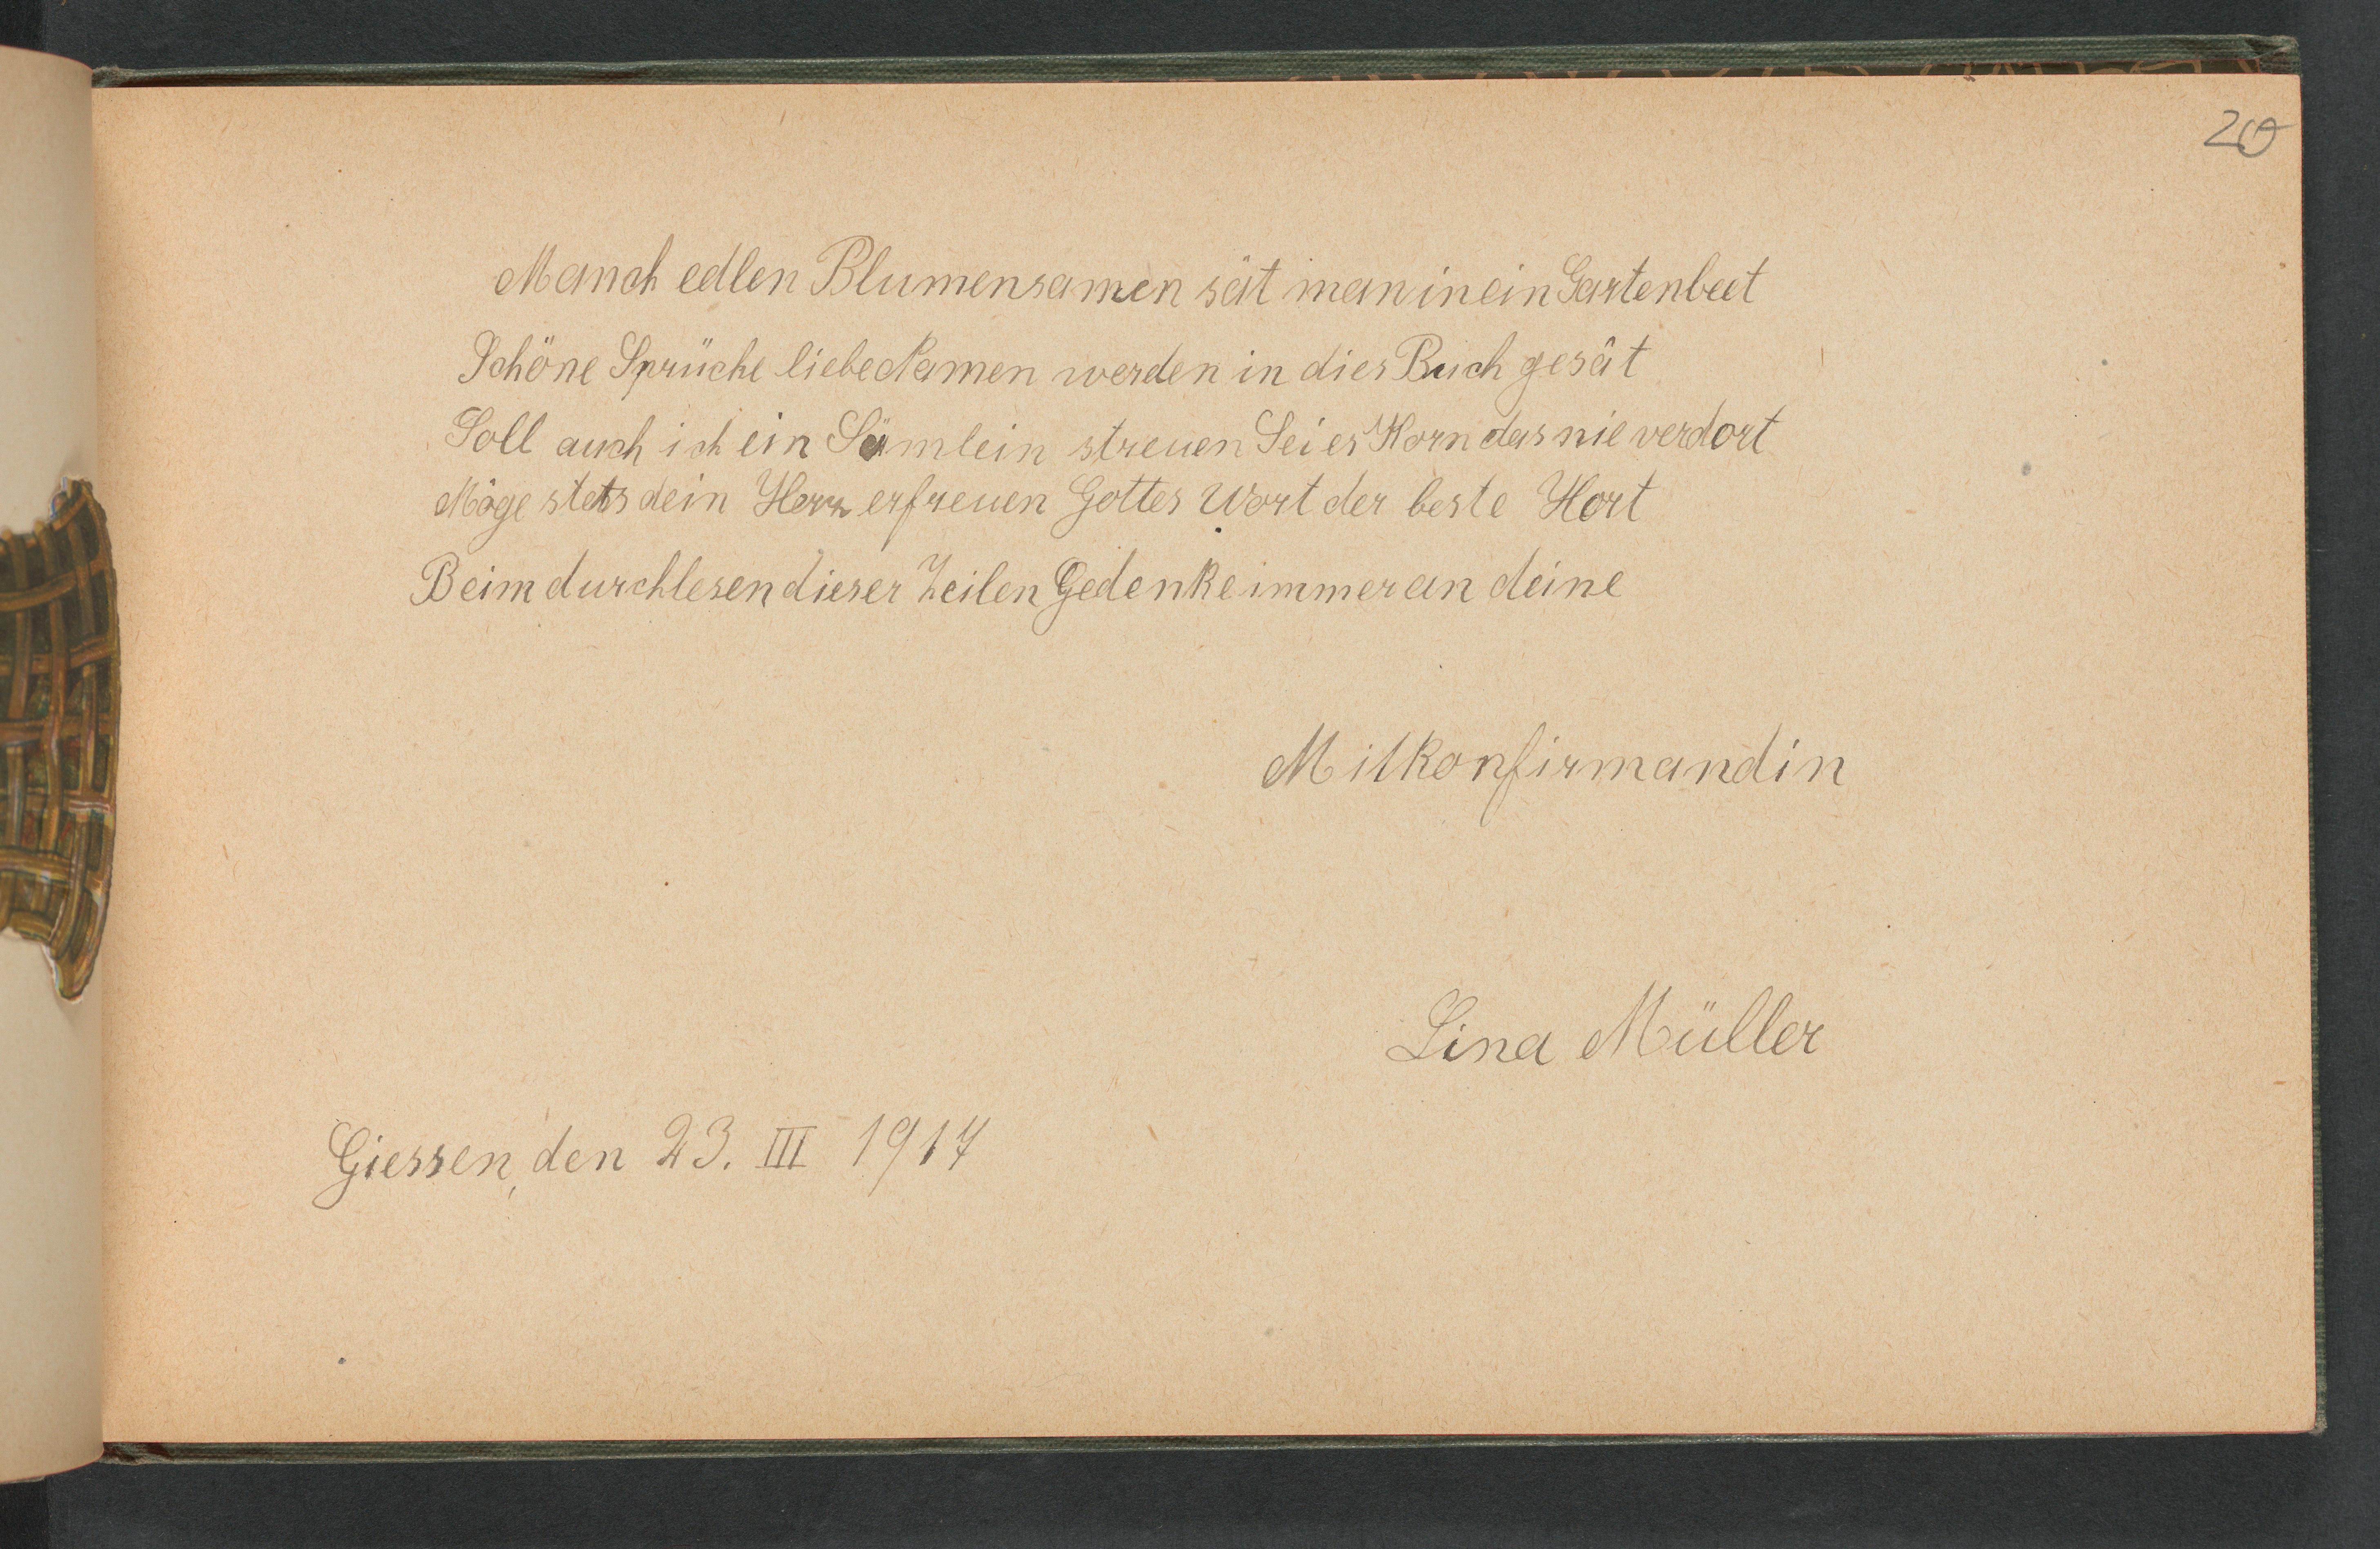 20
Manch edlen Blumensamen sät man in ein Gartenbeet
Schöne Sprüche liebe Namen werden in dies Buch gesät
Soll auch ich ein Sämlein streuen Sei es Korn das nie verdort
Möge stets dein Herz erfreuen Gottes Wort der beste Hort
Beim durchlesen dieser Zeilen Gedenke immer an deine
Mitkonfirmandin
Lina Müller
Giessen, den 23. III 1917